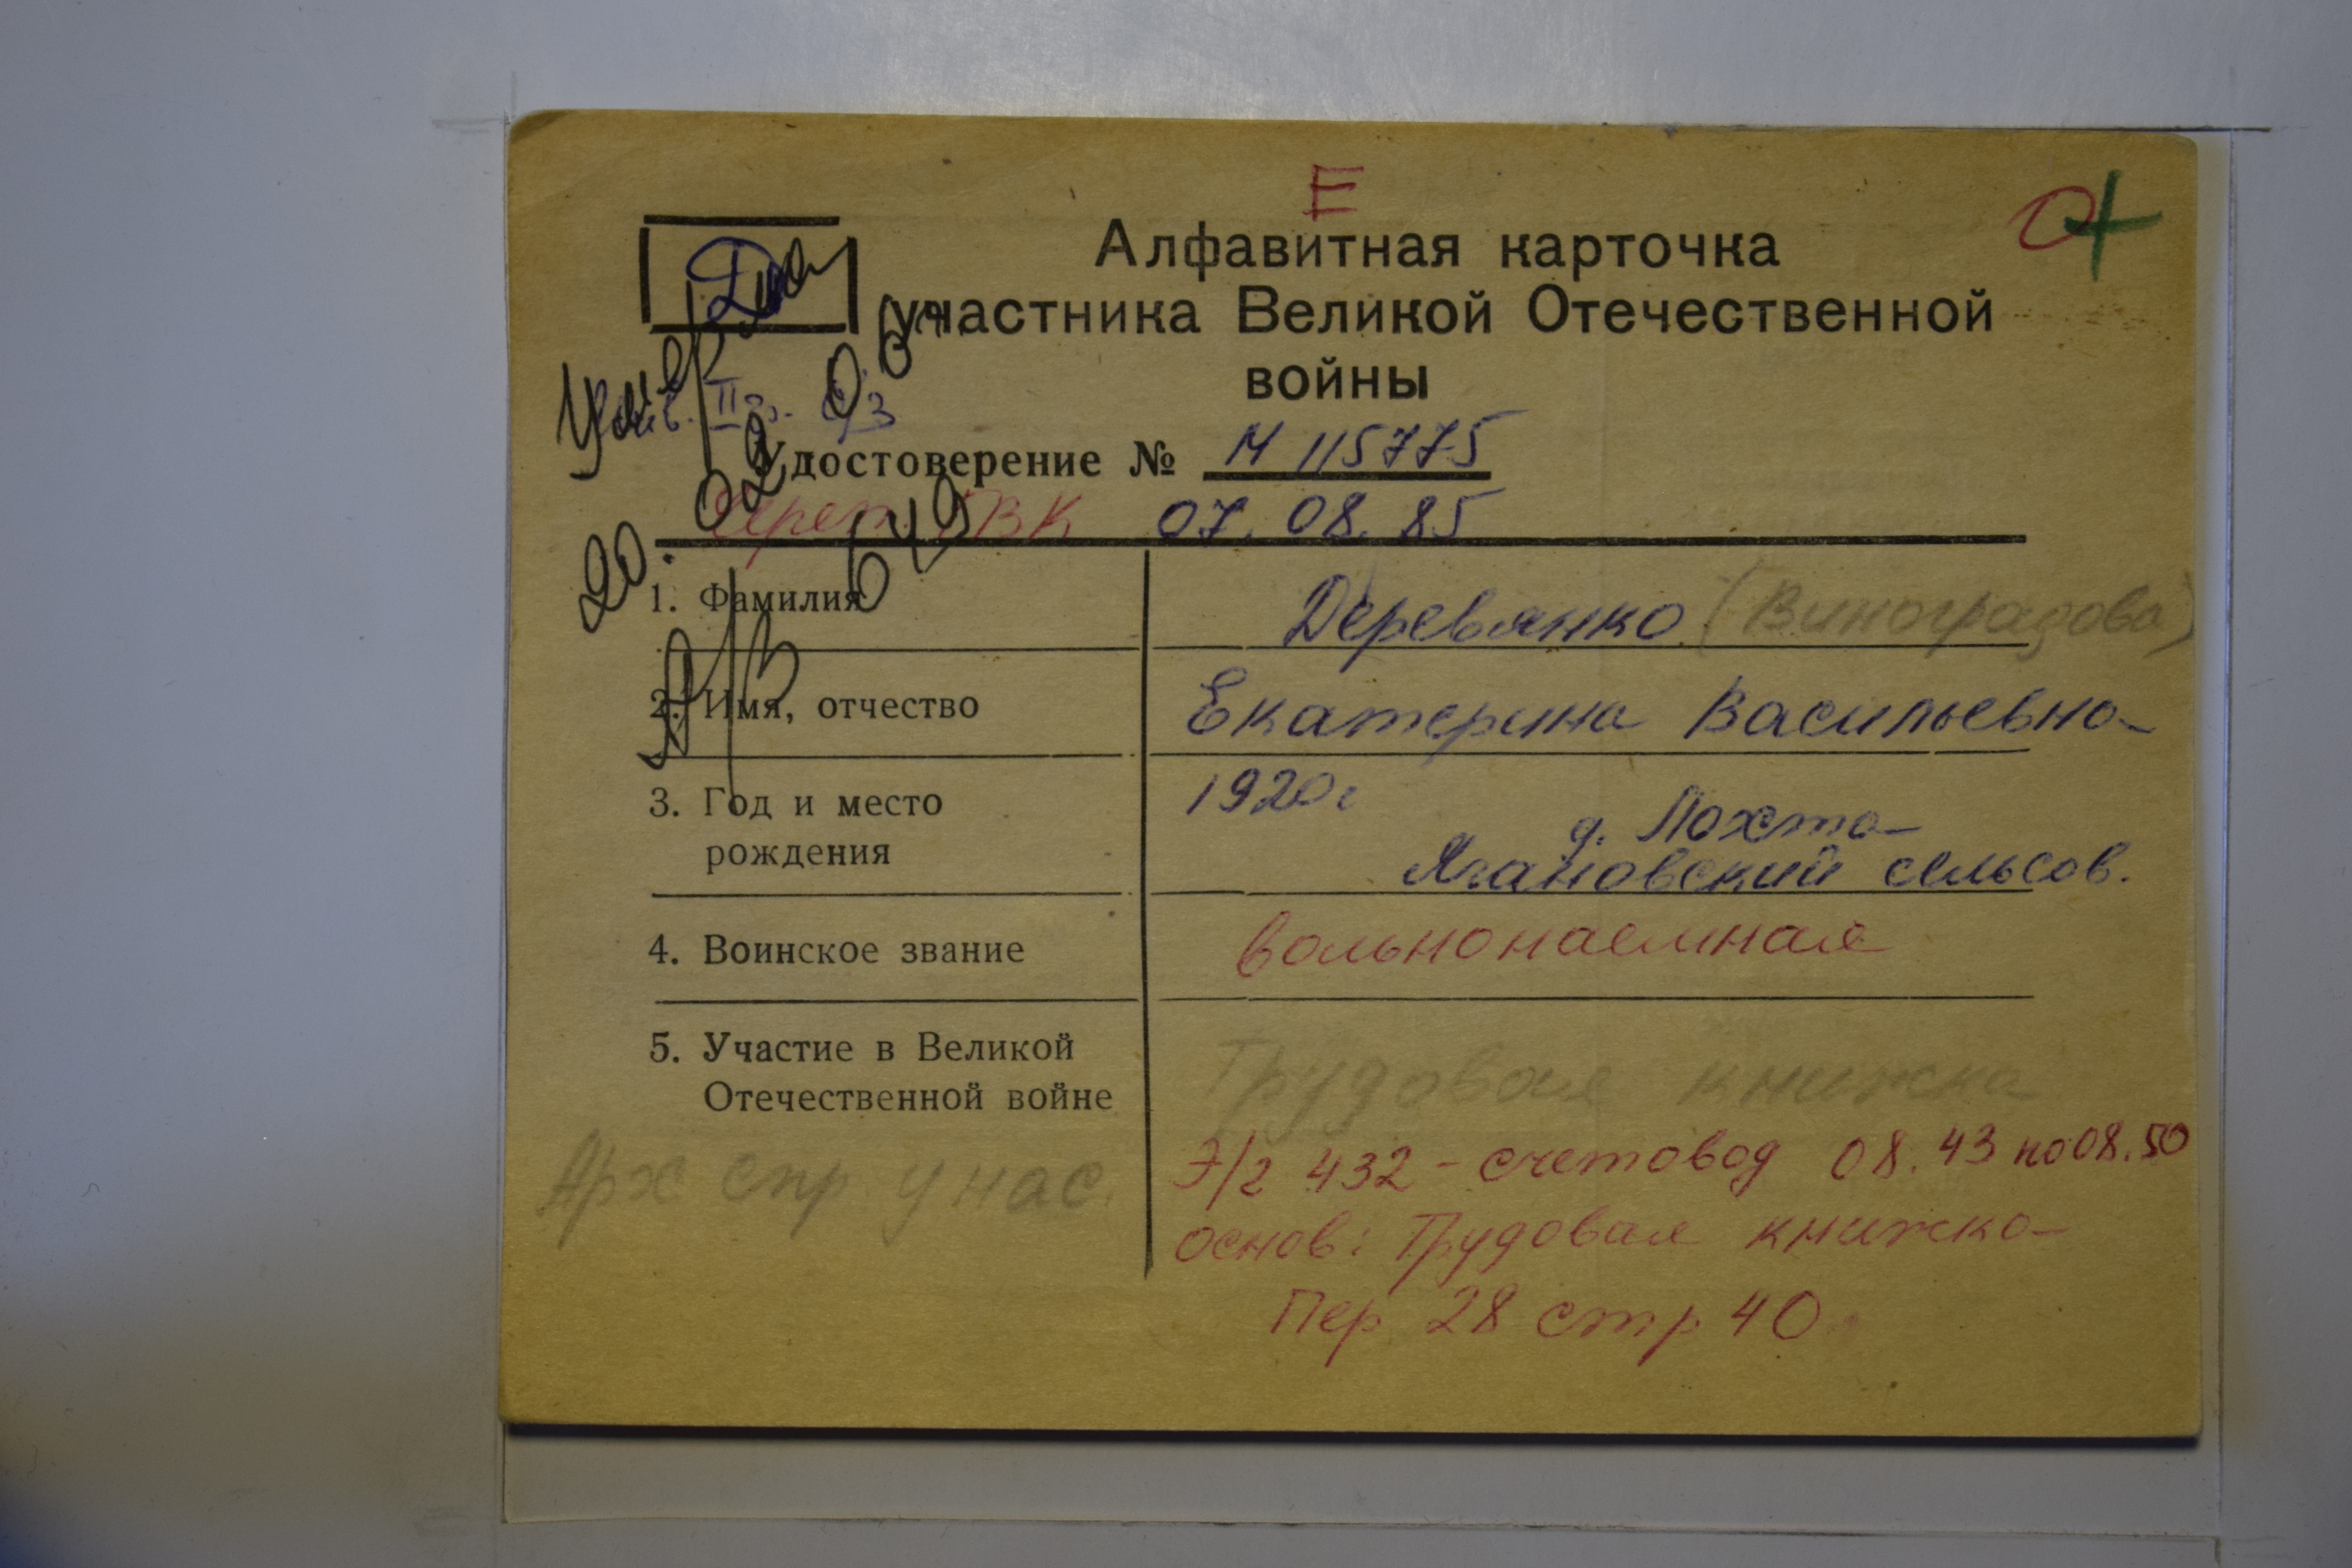 Е
Алфавитная карточка
участника Великой Отечественной
войны
Удостоверение № И 115775
Череп. ГВК 07.08.85
Умерла
20.02.
1. Фамилия Деревянко (Виноградова)
2. Имя, отчество Екатерина Васильевна
3. Год и место 1920г
рождения д. Похта
Ягановский сельсов.
4. Воинское звание вольнонаемная
5. Участие в Великой
Отечественной войне Трудовая книжка
Арх спр у нас. Э/г 432 - счетовод 08.43 по 08.50
основ: Трудовая книжка
Пер 28 стр 40